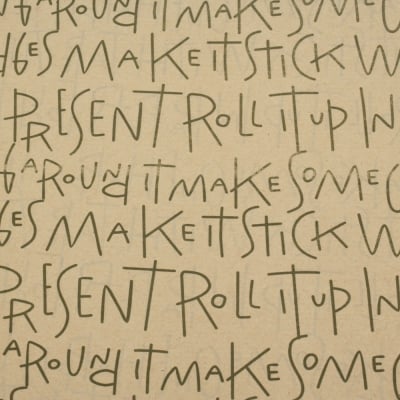 AROUND IT MAKE SOME
MAKE IT STICK
PRESENT ROLL IT UP IN
AROUND IT MAKE SOME
MAKE IT STICK
PRESENT ROLL IT UP IN
AROUND IT MAKE SOME